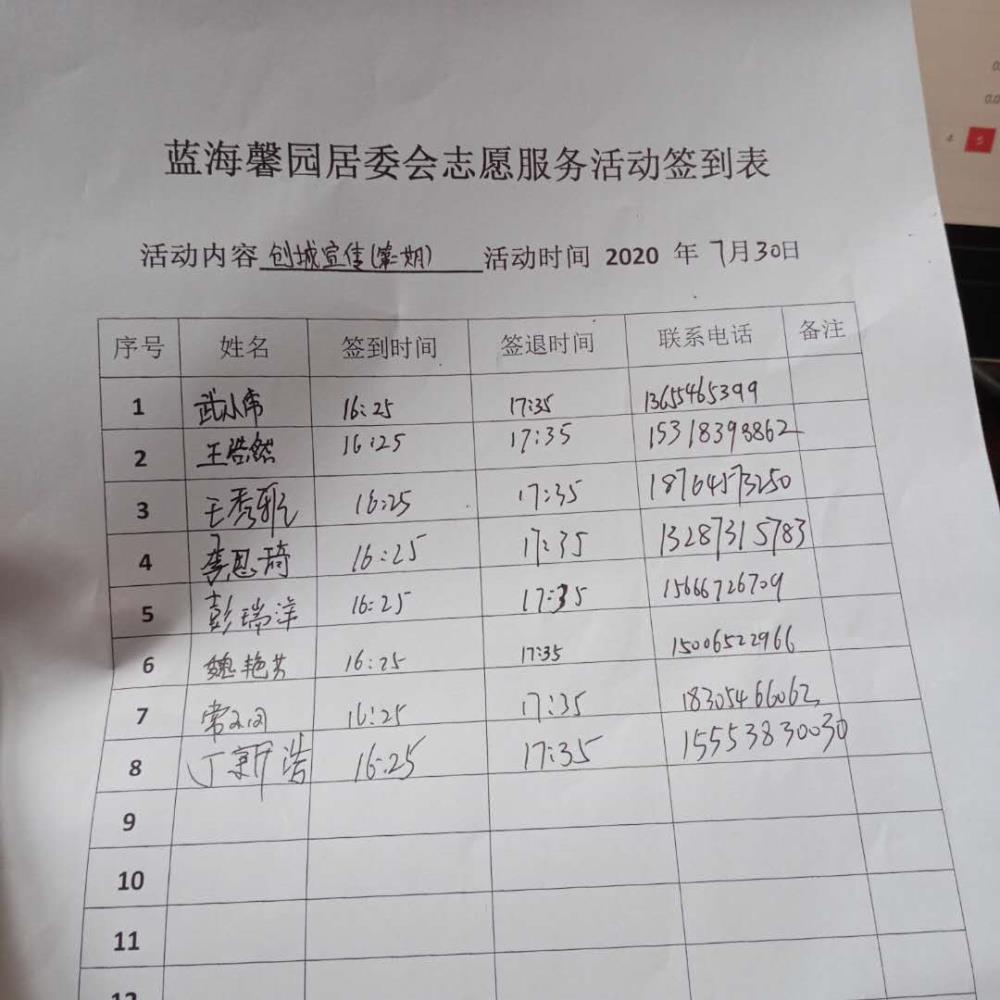 蓝海馨园居委会志愿服务活动签到表
活动内容 创城宣传(第二期) 活动时间 2020 年 7月30日
序号 姓名 签到时间 签退时间 联系电话 备注
1 武小席 16:25 17:35 13655465399
2 王浩然 16:25 17:35 15318398862
3 王秀雅 16:25 17:35 18764573250
4 李思琦 16:25 17:35 13287315783
5 彭瑞洋 16:25 17:35 15666726709
6 魏艳芳 16:25 17:35 15006522966
7 16:25 17:35 18305466062
8 丁新浩 16:25 17:35 15553830030
9
10
11
12
4 5